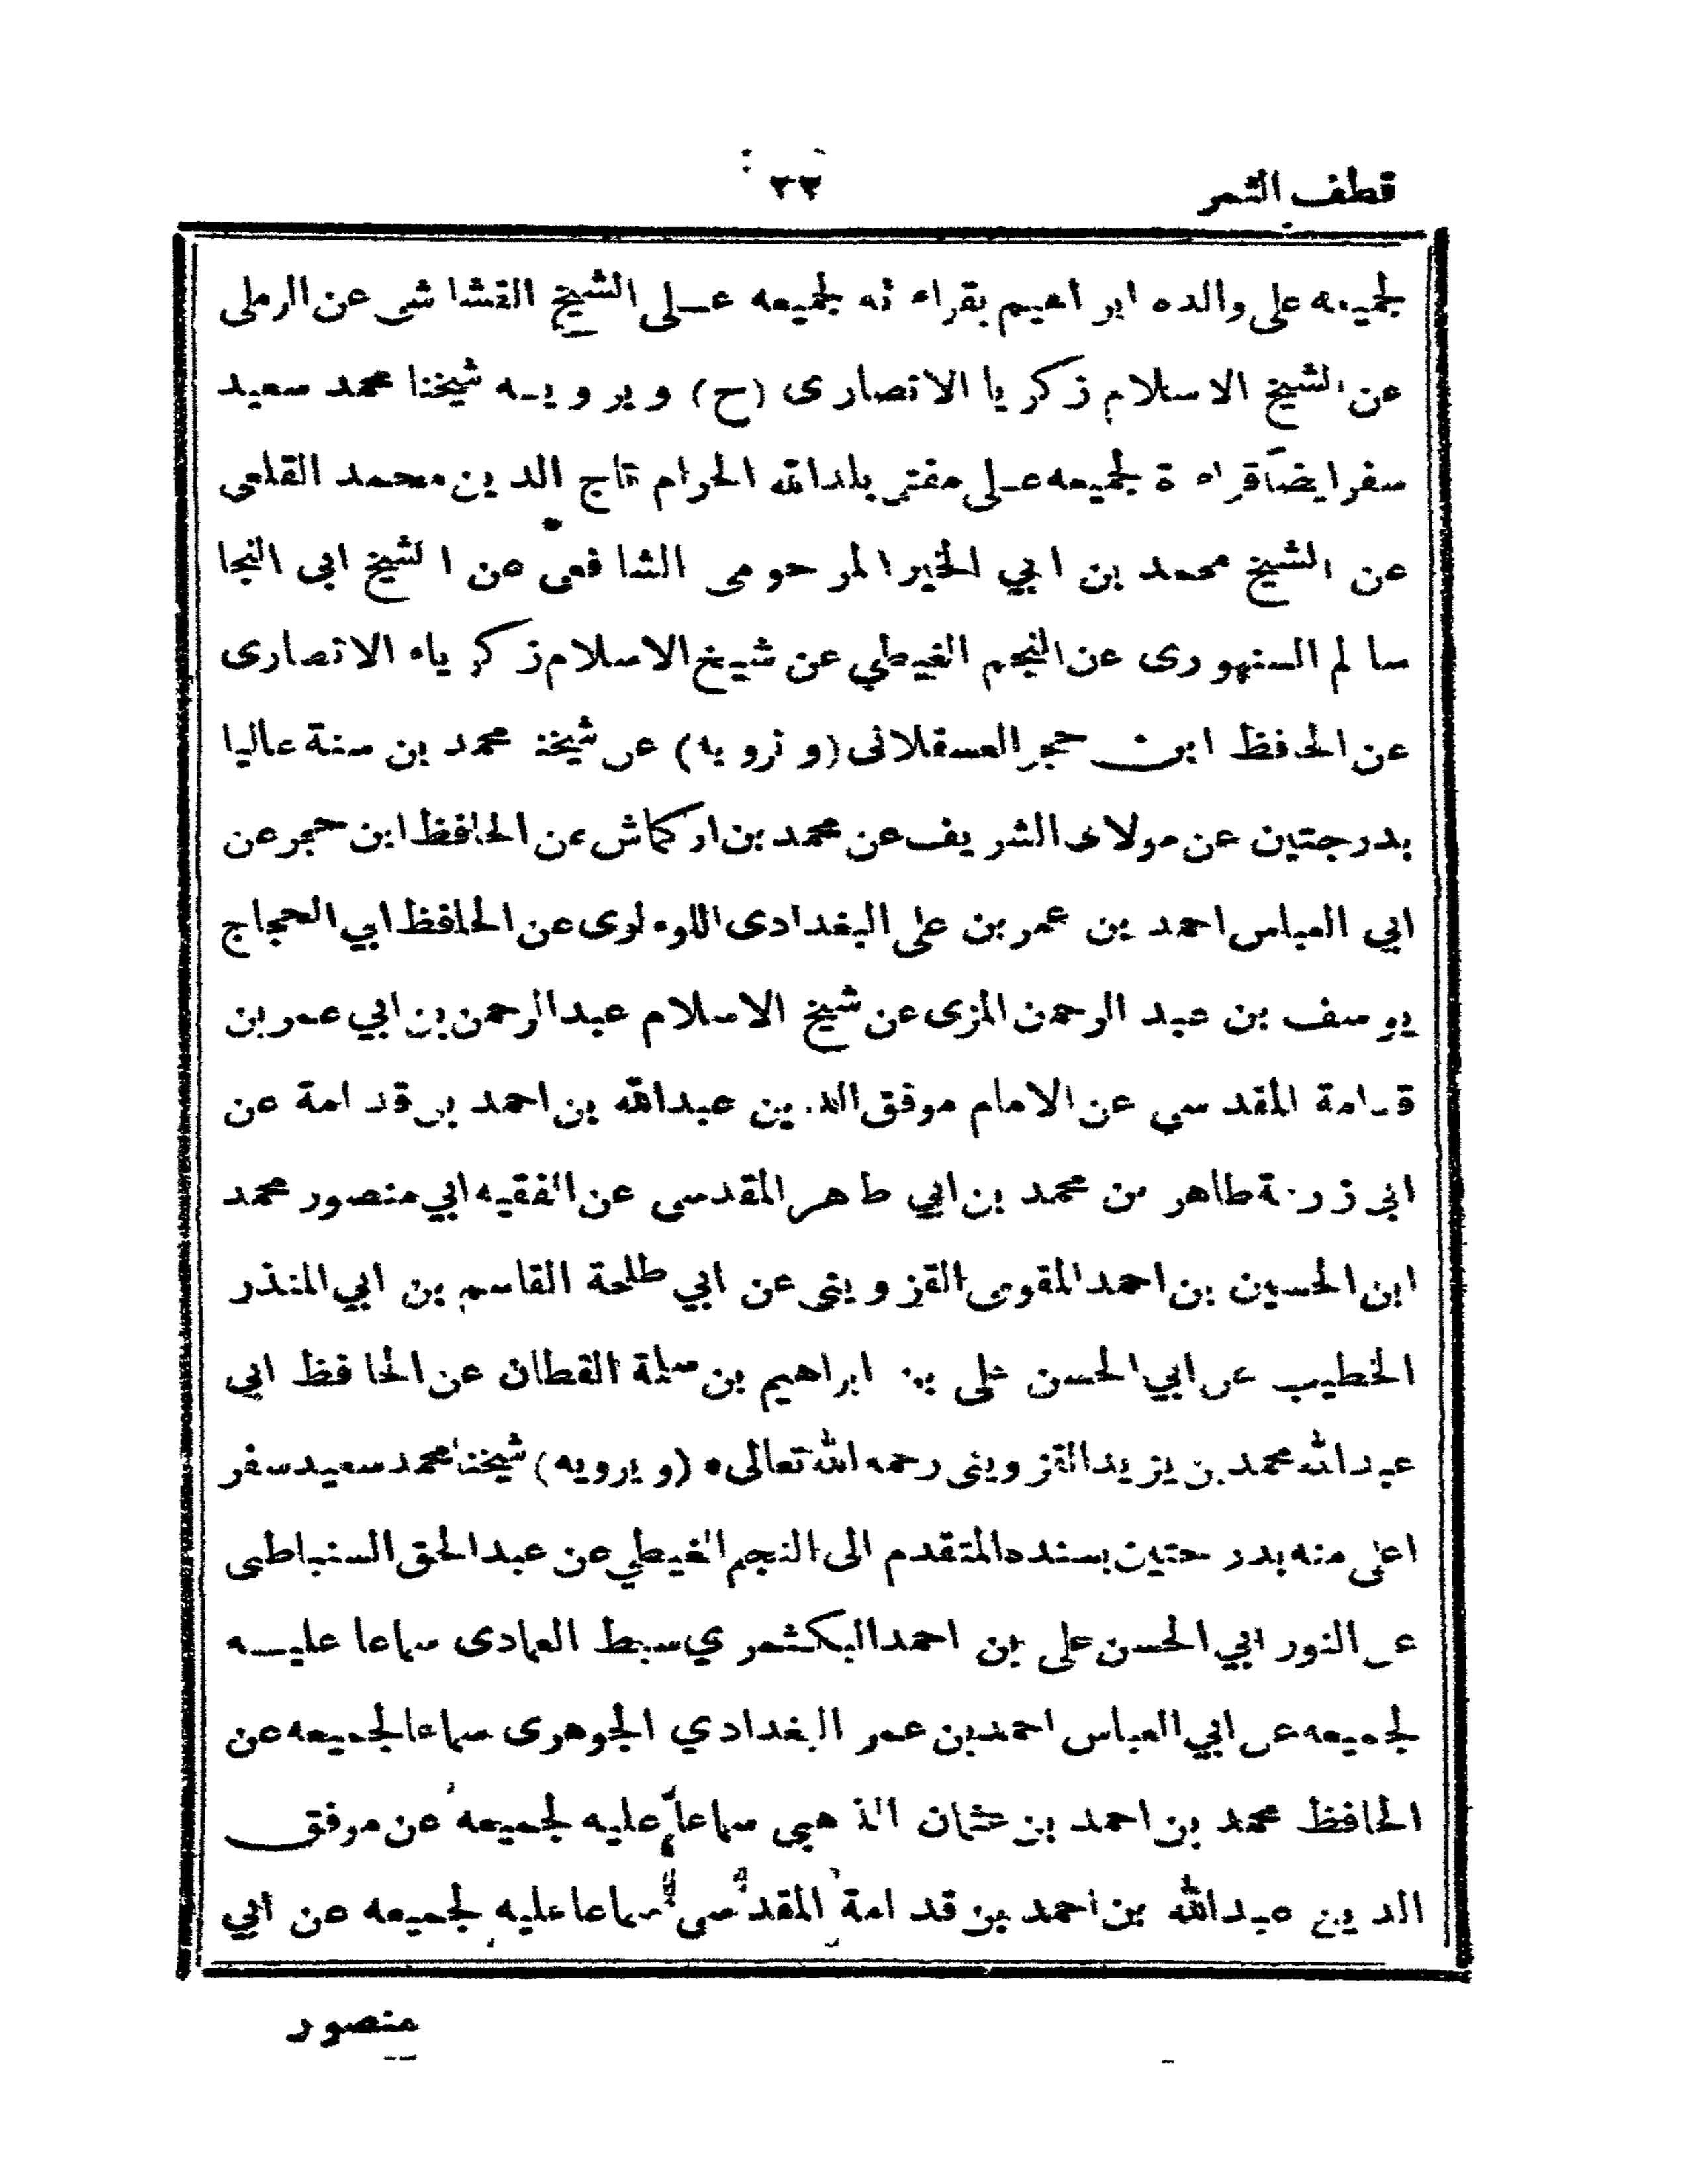 قطف الثمر
٢٢
لجميعه على والده ابراهيم بقراءته لجميعه على الشيخ القشاشى عن الرملى
عن الشيخ الاسلام زكريا الانصارى (ح) ويرويه شيخنا محمد سعيد
سفر ايضاً قراءة لجميعه على مفتى بلد الله الحرام تاج الدين محمد القلعى
عن الشيخ محمد بن ابي الخير المرحومى الشافعى عن الشيخ ابى النجا
سالم السنهورى عن النجم الغيطي عن شيخ الاسلام زكرياء الانصارى
عن الحافظ ابن حجر العسقلانى (ونرويه) عن شيخنا محمد بن سنة عاليا
بدرجتين عن مولاى الشريف عن محمد بن اركماش عن الحافظ ابن حجر عن
ابي العباس احمد بن عمر بن على البغدادى اللوءلوى عن الحافظ ابي الحجاج
يوسف بن عبد الرحمن المزى عن شيخ الاسلام عبد الرحمن بن ابي عمر بن
قدامة المقدسي عن الامام موفق الدين عبد الله بن احمد بن قدامة عن
ابى زرعة طاهر بن محمد بن ابي طاهر المقدسى عن الفقيه ابي منصور محمد
ابن الحسين بن احمد المقومى القزوينى عن ابي طلحة القاسم بن ابي المنذر
الخطيب عن ابي الحسن على بن ابراهيم بن سلمة القطان عن الحافظ ابي
عبد الله محمد بن يزيد القزوينى رحمه الله تعالى • (ويرويه) شيخنا محمد سعيد سفر
اعلى منه بدرجتين بسنده المتقدم الى النجم الغيطي عن عبد الحق السنباطى
عن النور ابي الحسن على بن احمد البكتمري سبط العمادى سماعا عليه
لجميعه عن ابي العباس احمد بن عمر البغدادي الجوهرى سماعا لجميعه عن
الحافظ محمد بن احمد بن عثمان الذهبي سماعاً عليه لجميعه عن موفق
الدين عبد الله بن احمد بن قدامة المقدسى سماعا عليه لجميعه عن ابي
منصور